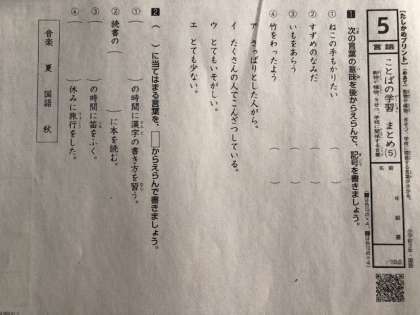 たしかめプリント
5
言語
ことばの学習 まとめ(5)
年 組 番
名前
1 次の言葉の意味を後からえらんで、記号を書きましょう。
① ねこの手もかりたい ( )
② すずめのなみだ ( )
③ いもをあらう ( )
④ 竹をわったよう ( )
ア さっぱりとした人がら。
イ たくさんの人でこんざつしている。
ウ とてもいそがしい。
エ とても少ない。
2 ( )に当てはまる言葉を、□からえらんで書きましょう。
① ( )の時間に漢字の書き方を習う。
② 読書の( )に本を読む。
③ ( )の時間に笛をふく。
④ ( )休みに旅行をした。
音楽 夏 国語 秋